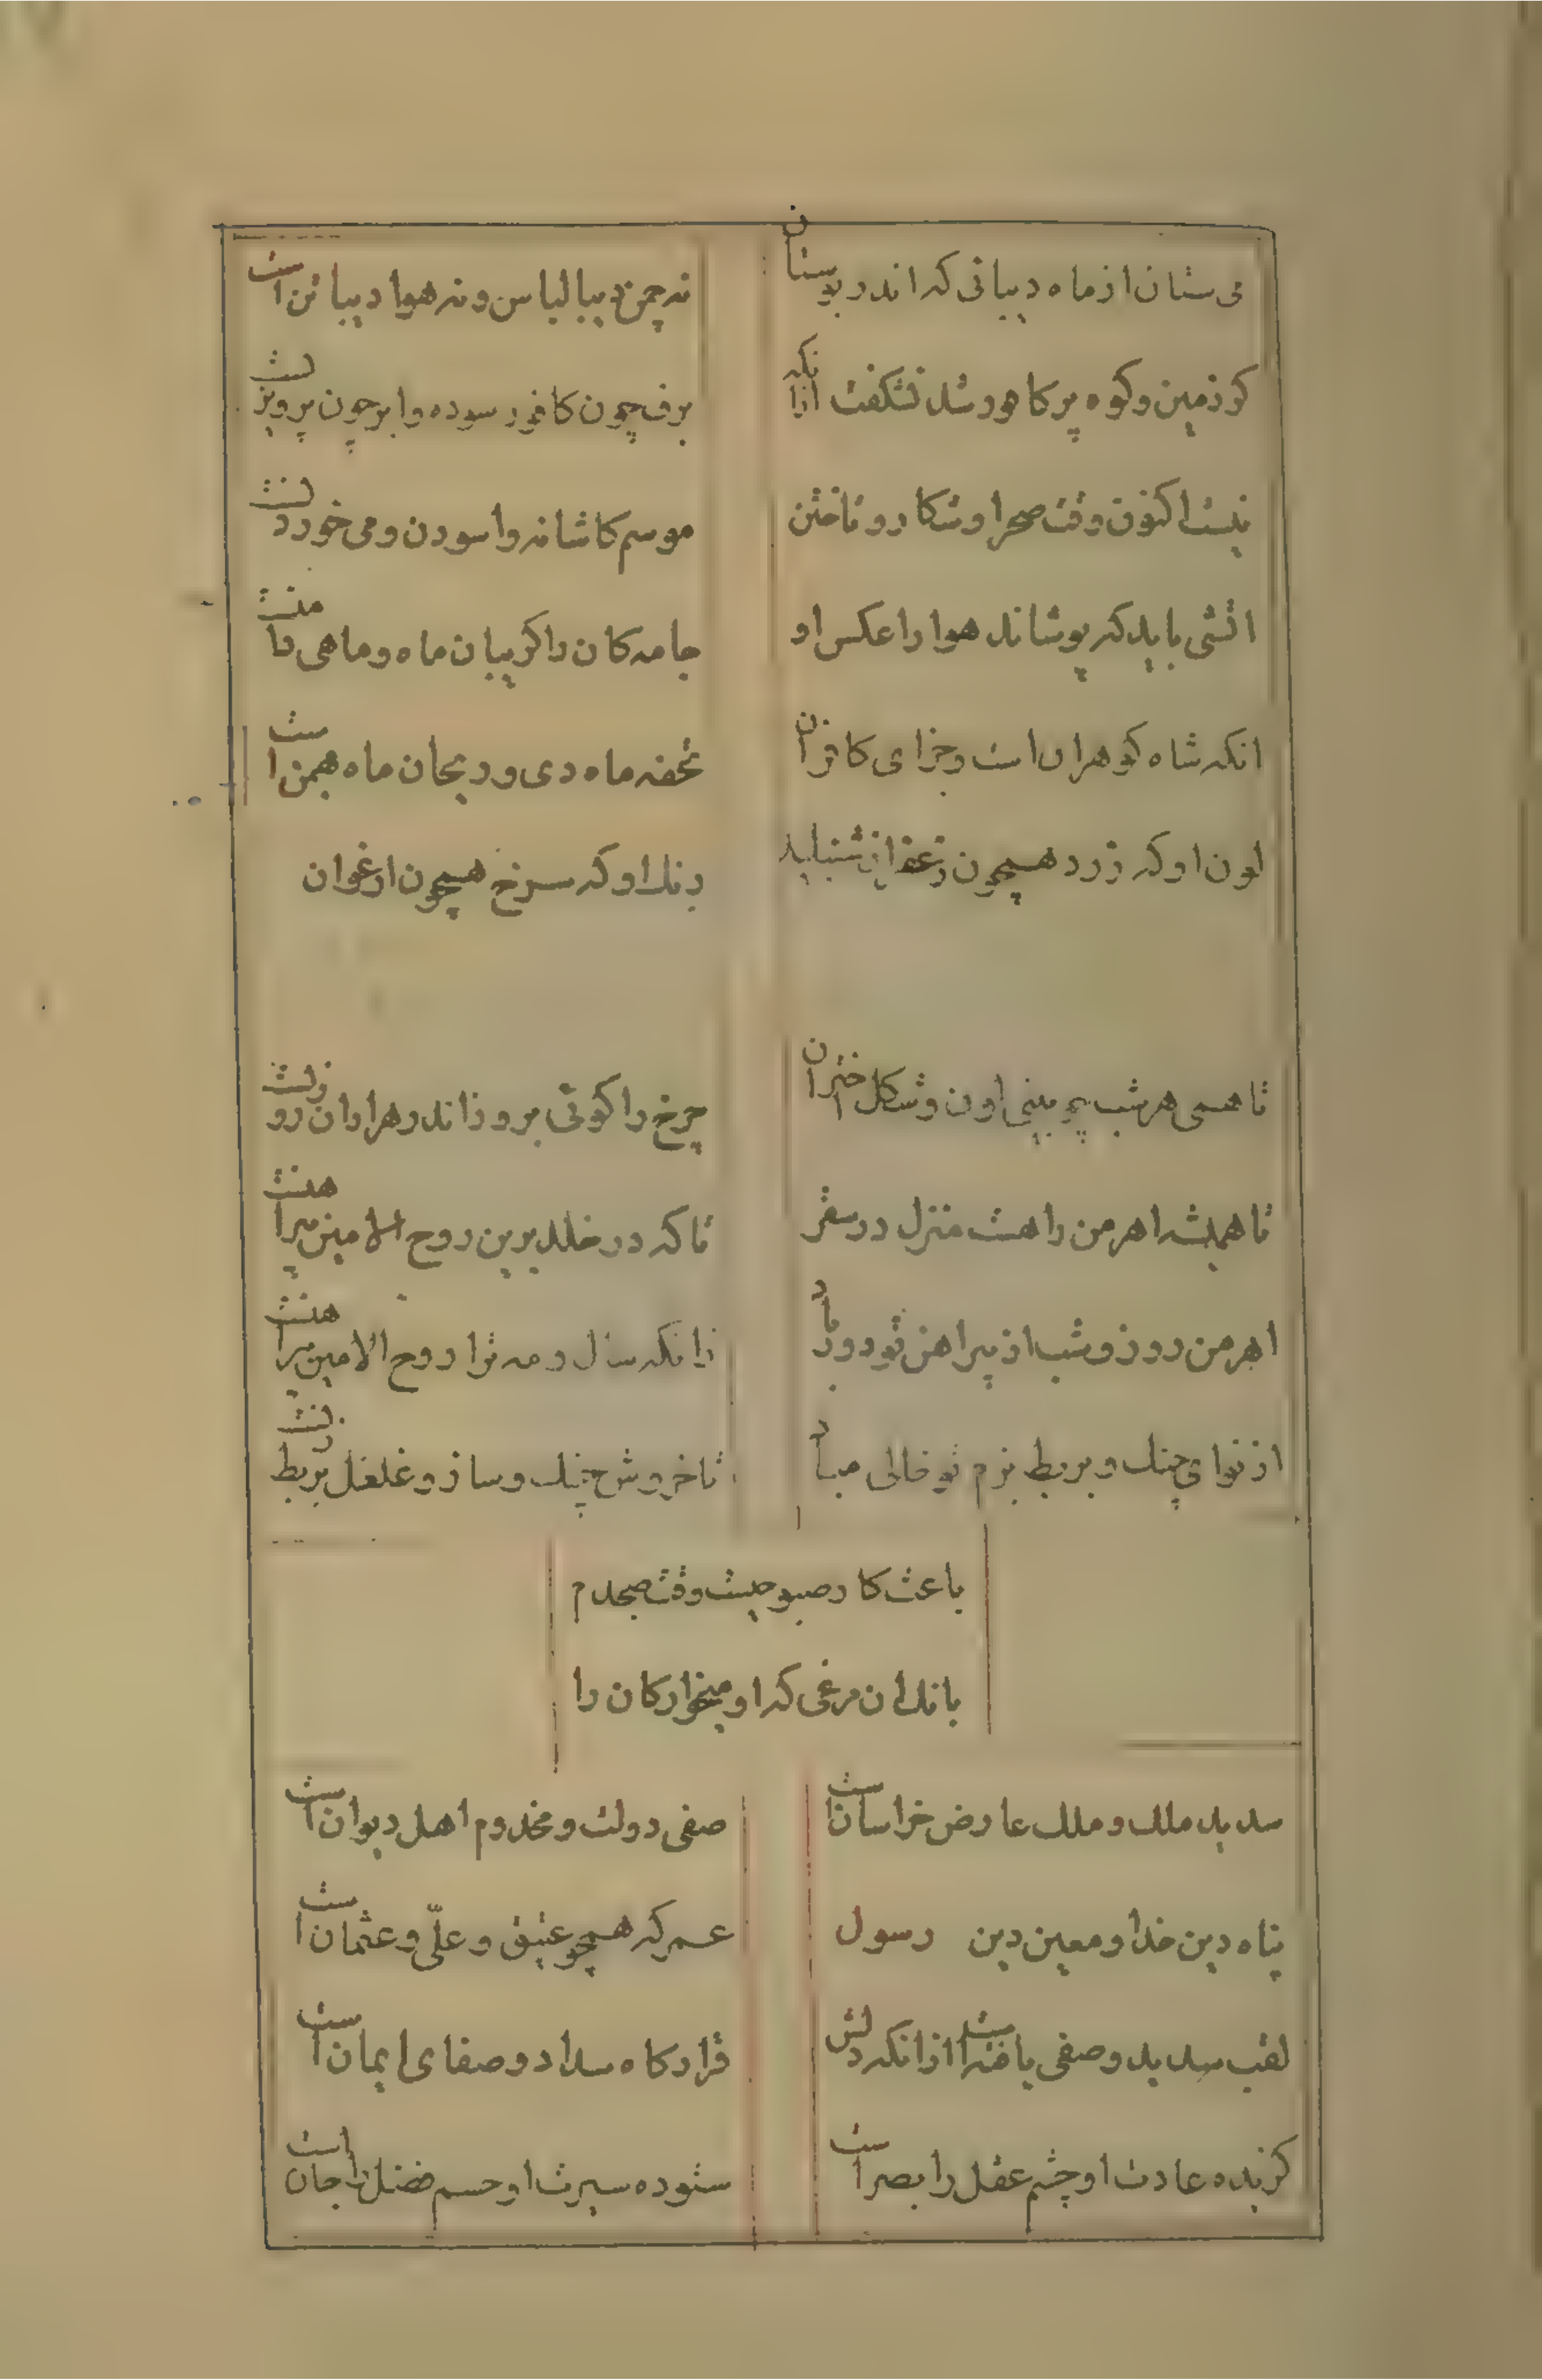 می ستان از ماه دیبائی که اندر بوستان
نه چمن دیبا لباس و نه هوا دیبا تن است
کوزمین و کوه پر کافور شد نشکفت ازانکه
برف چون کافور سوده و ابر چون پرویزنست
نیست اکنون وقت صحرا و شکار و تاختن
موسم کاشانه و اسودن و می خوردنست
اتشی باید که پوشاند هوا را عکس او
جامه کان را کریبان ماه و ماهی دامنست
انکه شاه کوهران است و جزای کافران
تحفه ماه دی و ریحان ماه بهمن است
لون او که زرد همچون زعفرانی شنبلید
رنك او که سرخ همچون ارغوان
تا همی هر شب چو بینی لون و شکل اختران
چرخ را کوئی بروز اندر هزاران روزنست
تا همیشه اهرمن را هست منزل در سقر
تا که در خلد برین روح الامین پیراهنست
اهرمن روز و شب از پیراهن تو دور باد
زانکه سال و مه ترا روح الامین پیراهنست
از نوای چنك و بربط بزم تو خالی مباد
تا خروش چنك و ساز و غلغل بربط زنست
باعث کار صبوحیست وقت صبحدم
بانك ان مرغی که او میخوارکان را
سدید ملك و ملك عارض خراسانست
صفی دولت و مخدوم اهل دیوانست
پناه دین خدا و معین دین رسول
عمر که همچو عتیق و علّی و عثمان است
لقب سدید و صفی یافته است ازانکه دلش
قرارکاه سداد و صفای ایمان است
کزیده عادت او چشم عقل را بصر است
ستوده سیرت او جسم فضل را جانست